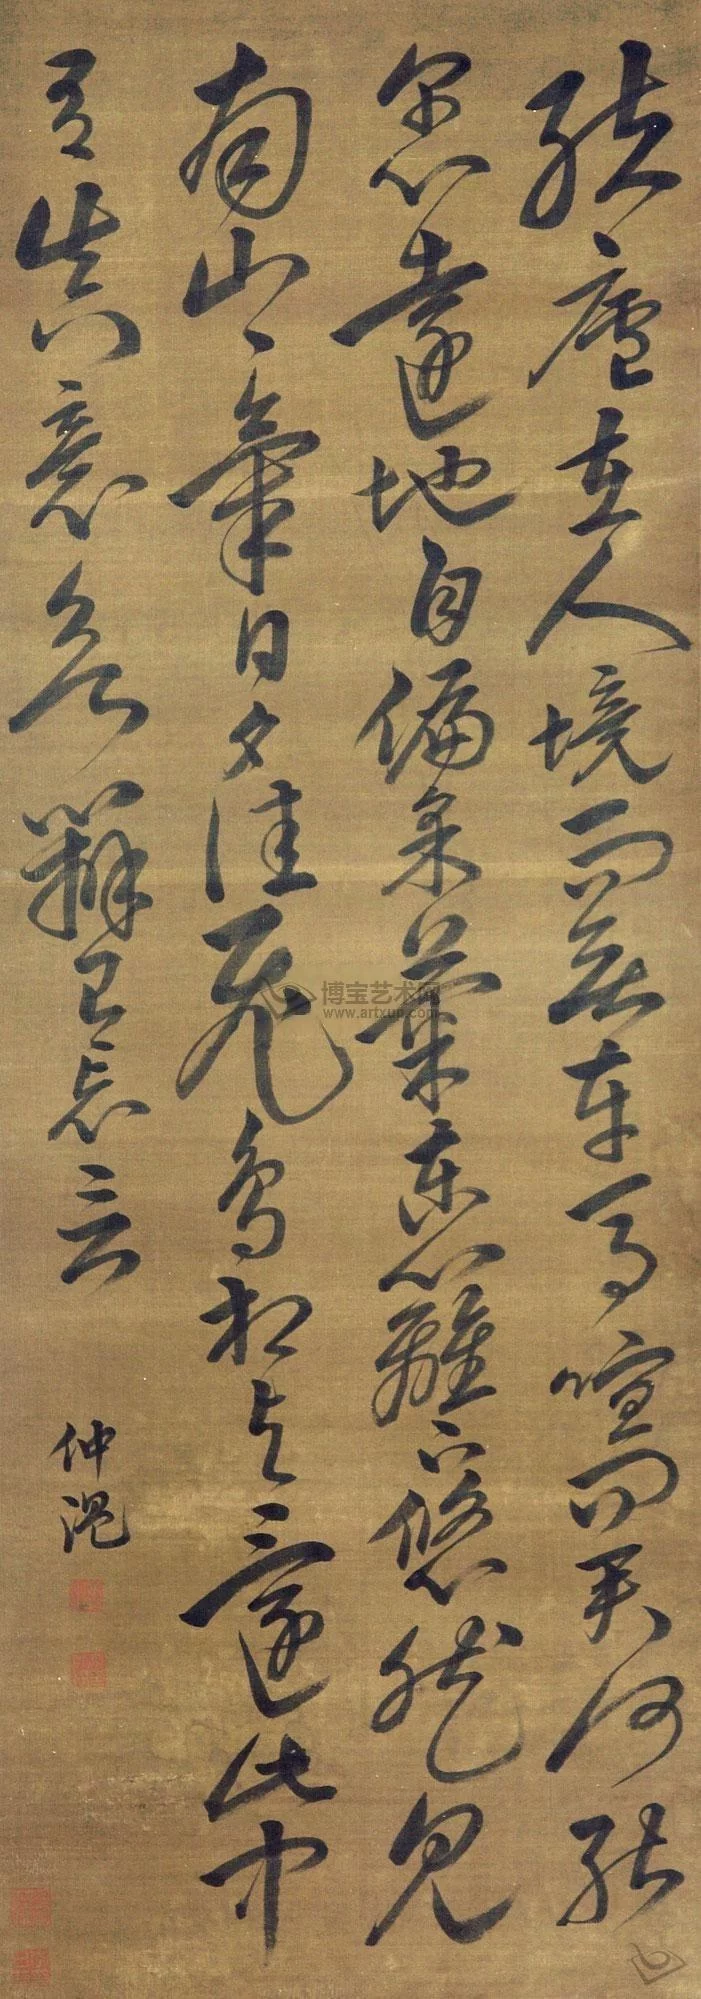 結廬在人境而無車馬喧問君何能
尔心遠地自偏采菊東籬下悠然見
南山〻氣日夕佳飛鳥相與還此中
有真意欲辯已忘言
仲温
博宝艺术网
www.artxun.com